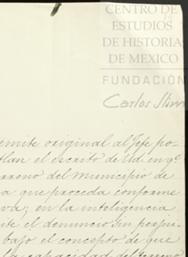 CENTRO DE
ESTUDIOS
DE HISTORIA
DE MEXICO
FUNDACIÓN
Carlos Slim
emite original al Jefe po-
tlan el escrito de Ud. en q.
del municipio de
a que proceda conforme
va; en la inteligencia
te el denuncio sin perju
bajo el concepto de que
la capacidad del terreno